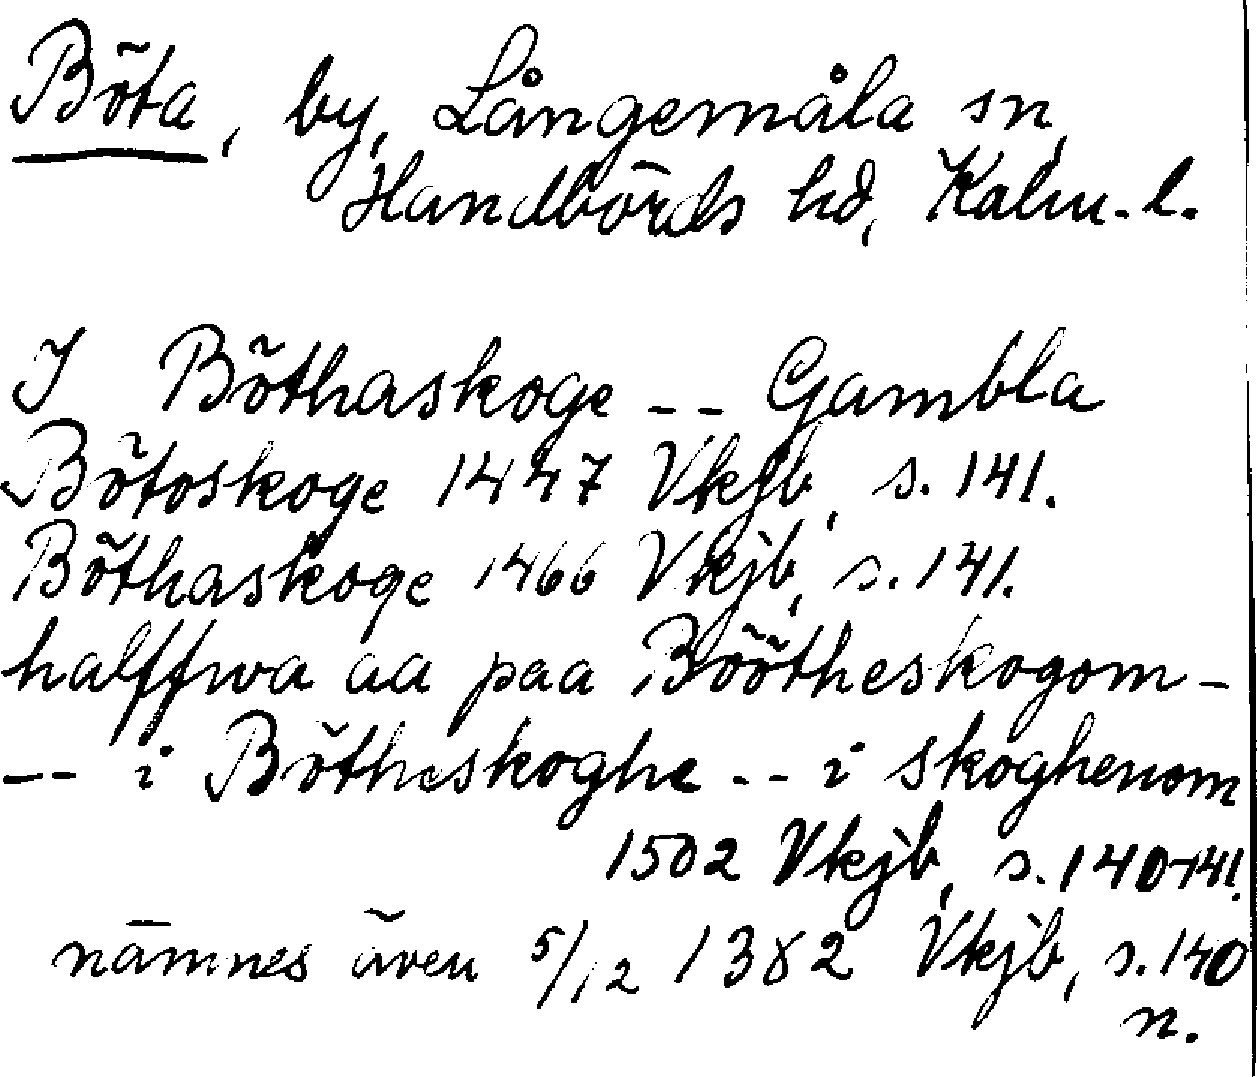 Böta, by, Långemåla sn,
Handbörds hd, Kalm. l.
I Böthaskoge -- Gambla
Bötoskoge 1447 Vkjb, s. 141.
Böthaskoge 1466 Vkjb, s. 141.
halffwa aa paa Böötheskogom -
-- i Bötheskoghe -- i skoghenom
1502 Vkjb, s. 140-141.
nämnes även 5/12 1382 Vkjb, s. 140
n.